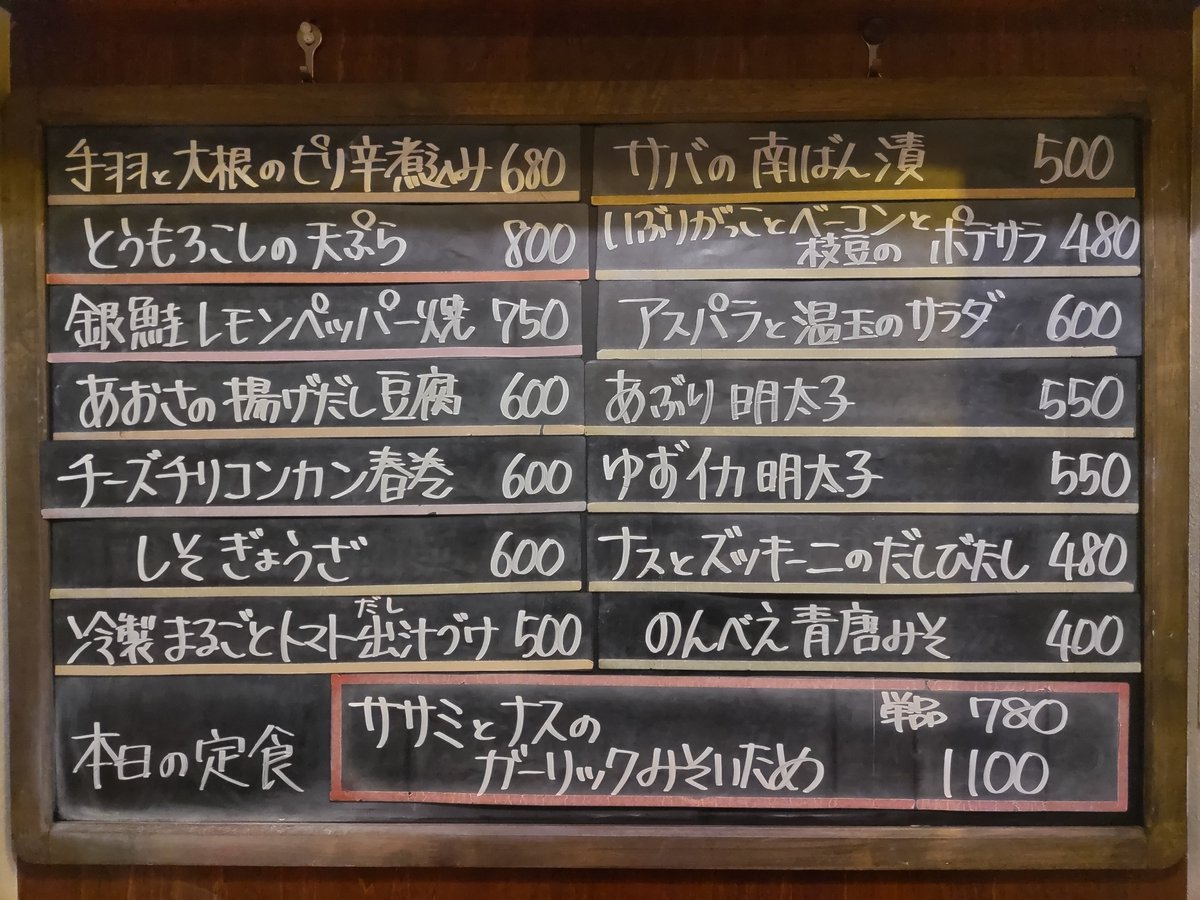 手羽と大根のピリ辛煮込み 680
とうもろこしの天ぷら 800
銀鮭レモンペッパー焼 750
あおさの揚げだし豆腐 600
チーズチリコンカン春巻 600
しそぎょうざ 600
だし
冷製まるごとトマト出汁づけ 500
サバの南ばん漬 500
いぶりがっことベーコンと
枝豆の ポテサラ 480
アスパラと温玉のサラダ 600
あぶり明太子 550
ゆずイカ明太子 550
ナスとズッキーニのだしびたし 480
のんべえ青唐みそ 400
本日の定食
ササミとナスの
ガーリックみそいため
単品 780
1100